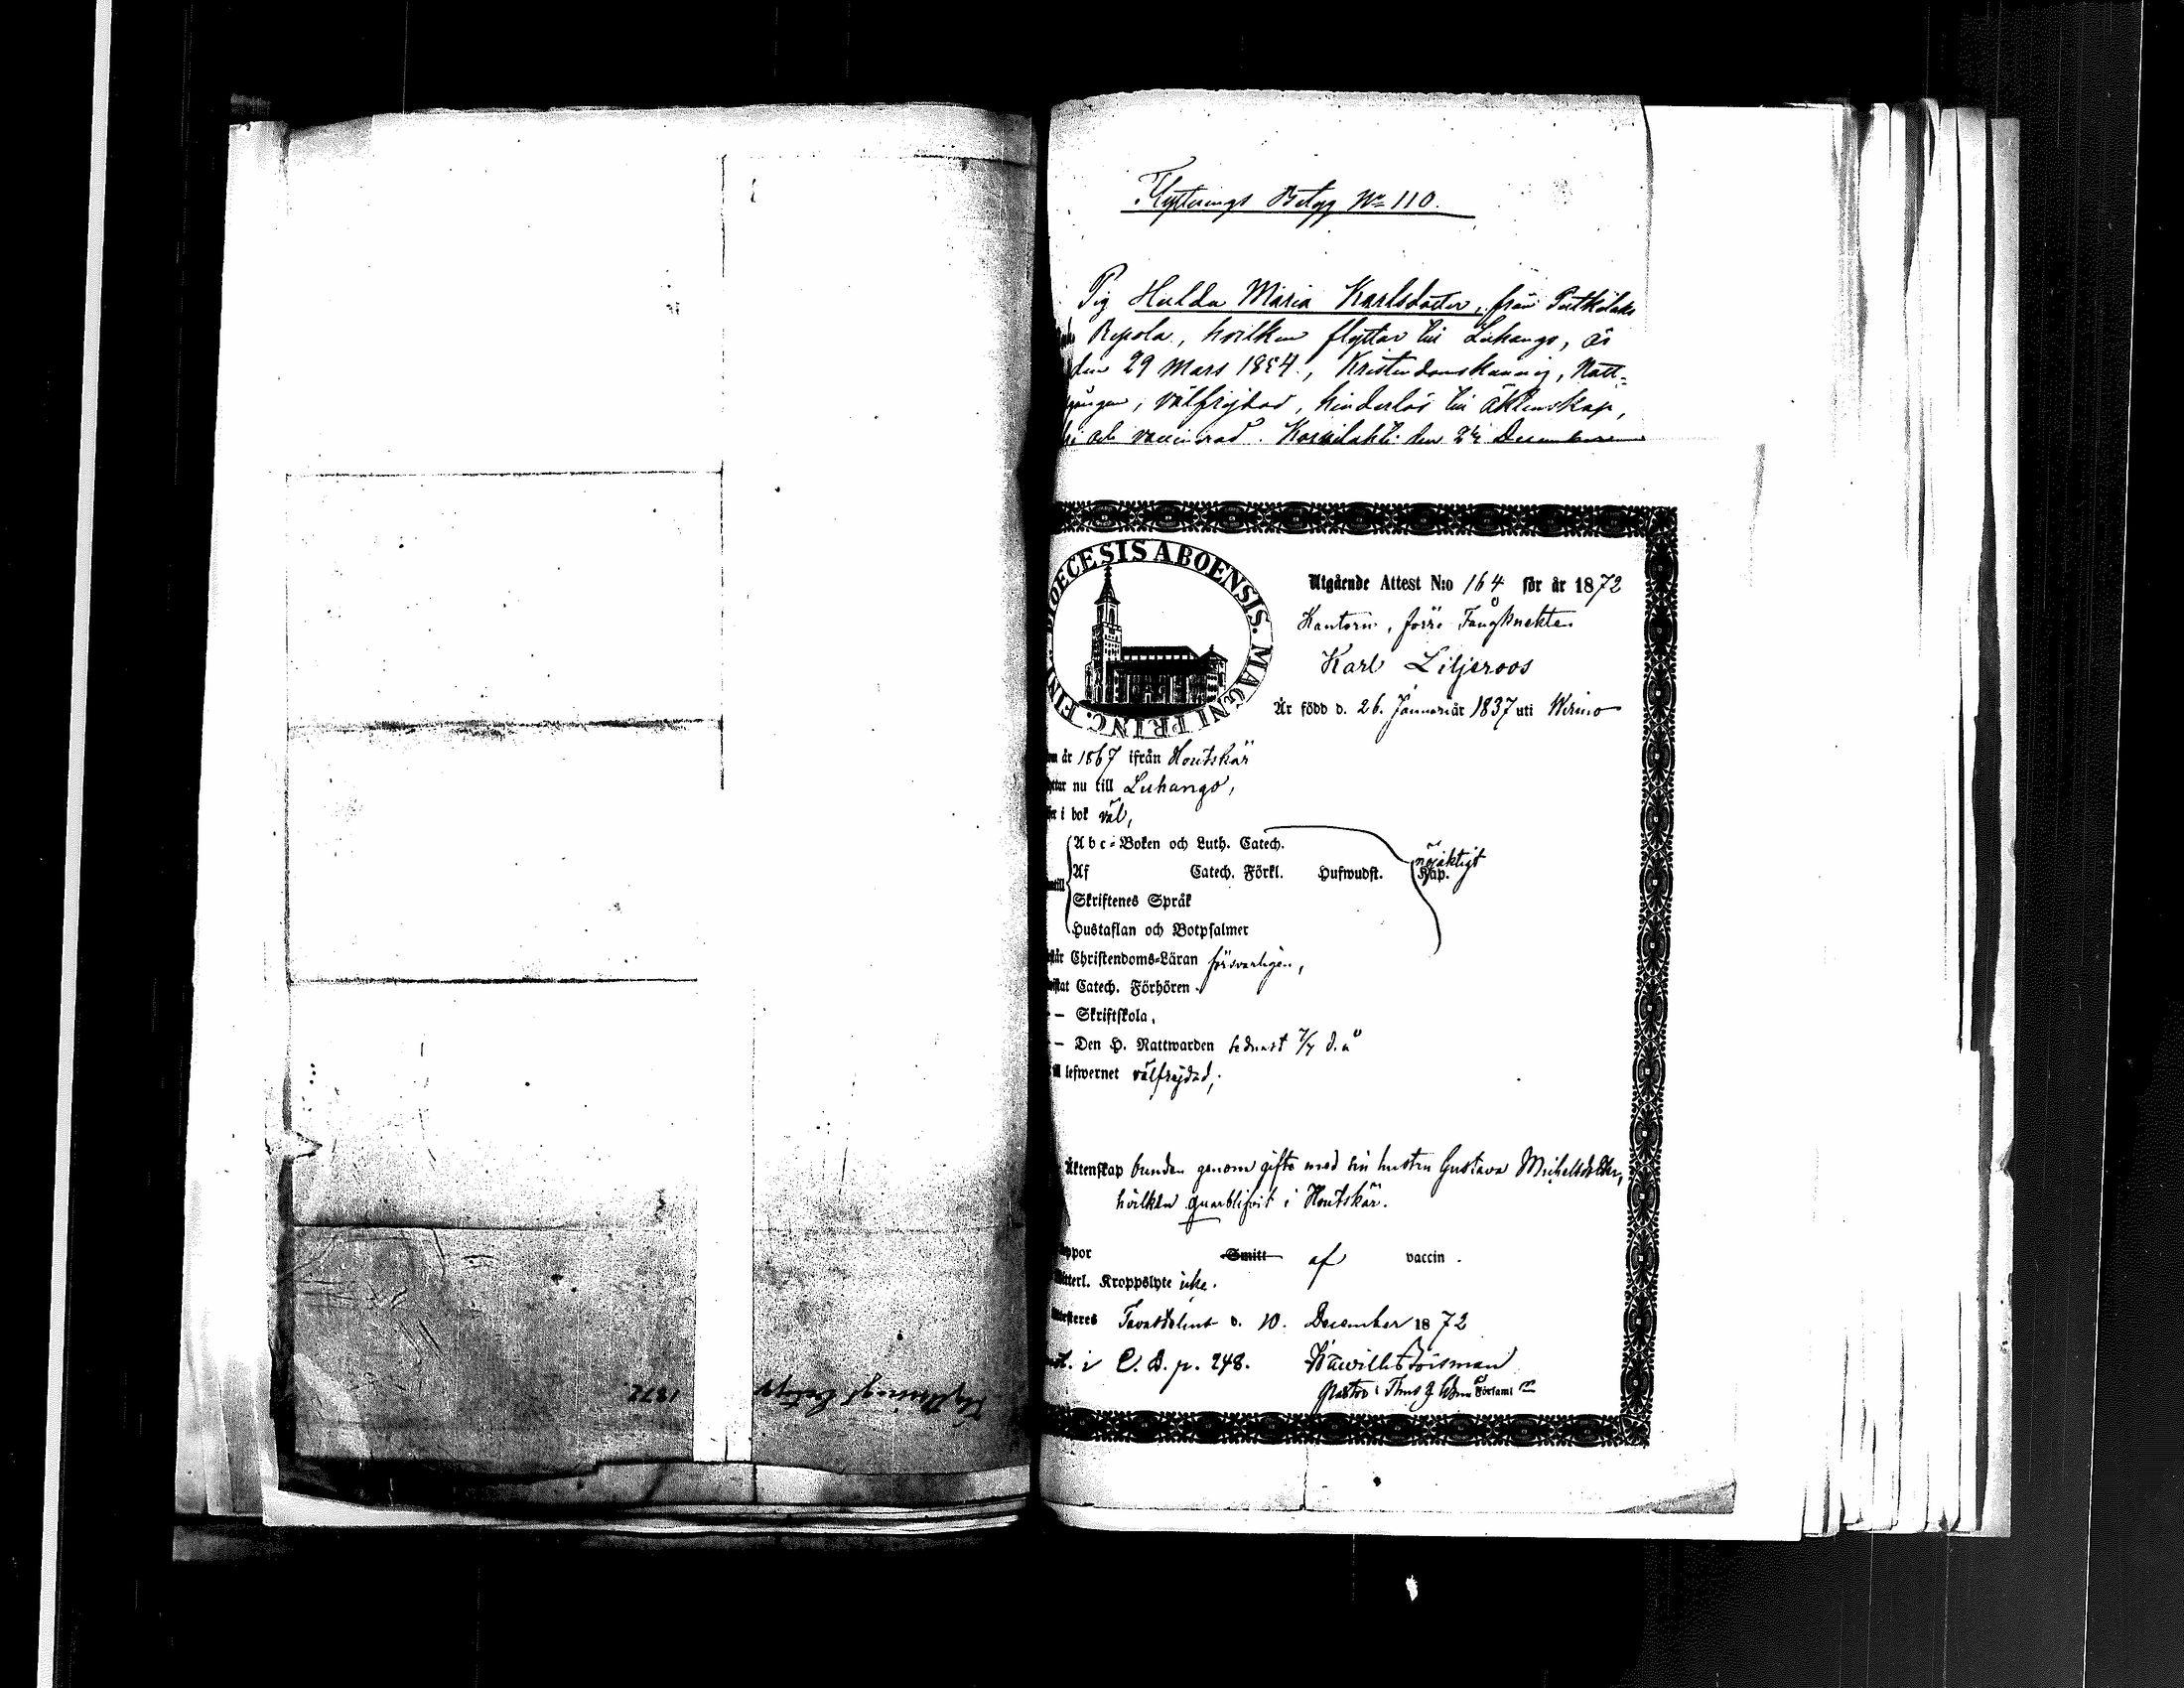 Flyttnings Betyg No 110.
Pig Hulda Maria Karlsdotter, från
Repola, hvilken flyttar till Luhango, är
den 29 Mars 1854, Kristendomskunnig, Natt-
gången, välfrejdad, hinderlös till äktenskap,
och vaccinerad. den December
DIOECESIS ABOENSIS. MAGNI PRINC. FINL
Utgående Attest N:o 164 för år 1872
Kantorn, förre Fångknekten
Karl Liljeroos
Är född d. 26. Januari år 1837 uti Wirmo
år 1867 ifrån Houtskär
nu till Luhango,
i bok väl,
Abc-Boken och Luth. Catech.
nöjaktigt
Af Catech. Förkl. Hufwudst. Kap.
Skriftenes Språk
Hustaflan och Botpsalmer
Christendoms-Läran försvarligen,
Catech. Förhören
– Skriftskola,
– Den H. Nattwarden senast 7/7 d.å
lefwernet välfrejdad,
Äktenskap bunden genom gifte med sin hustru Gustava Michelsdotter,
hvilken quarblifvit i Houtskär.
Smitt af vaccin.
Kroppslyte icke.
Tavastehus d. 10. December 1872
i C. B. p. 248.
Förlaml
Flyttnings betyg
1872.